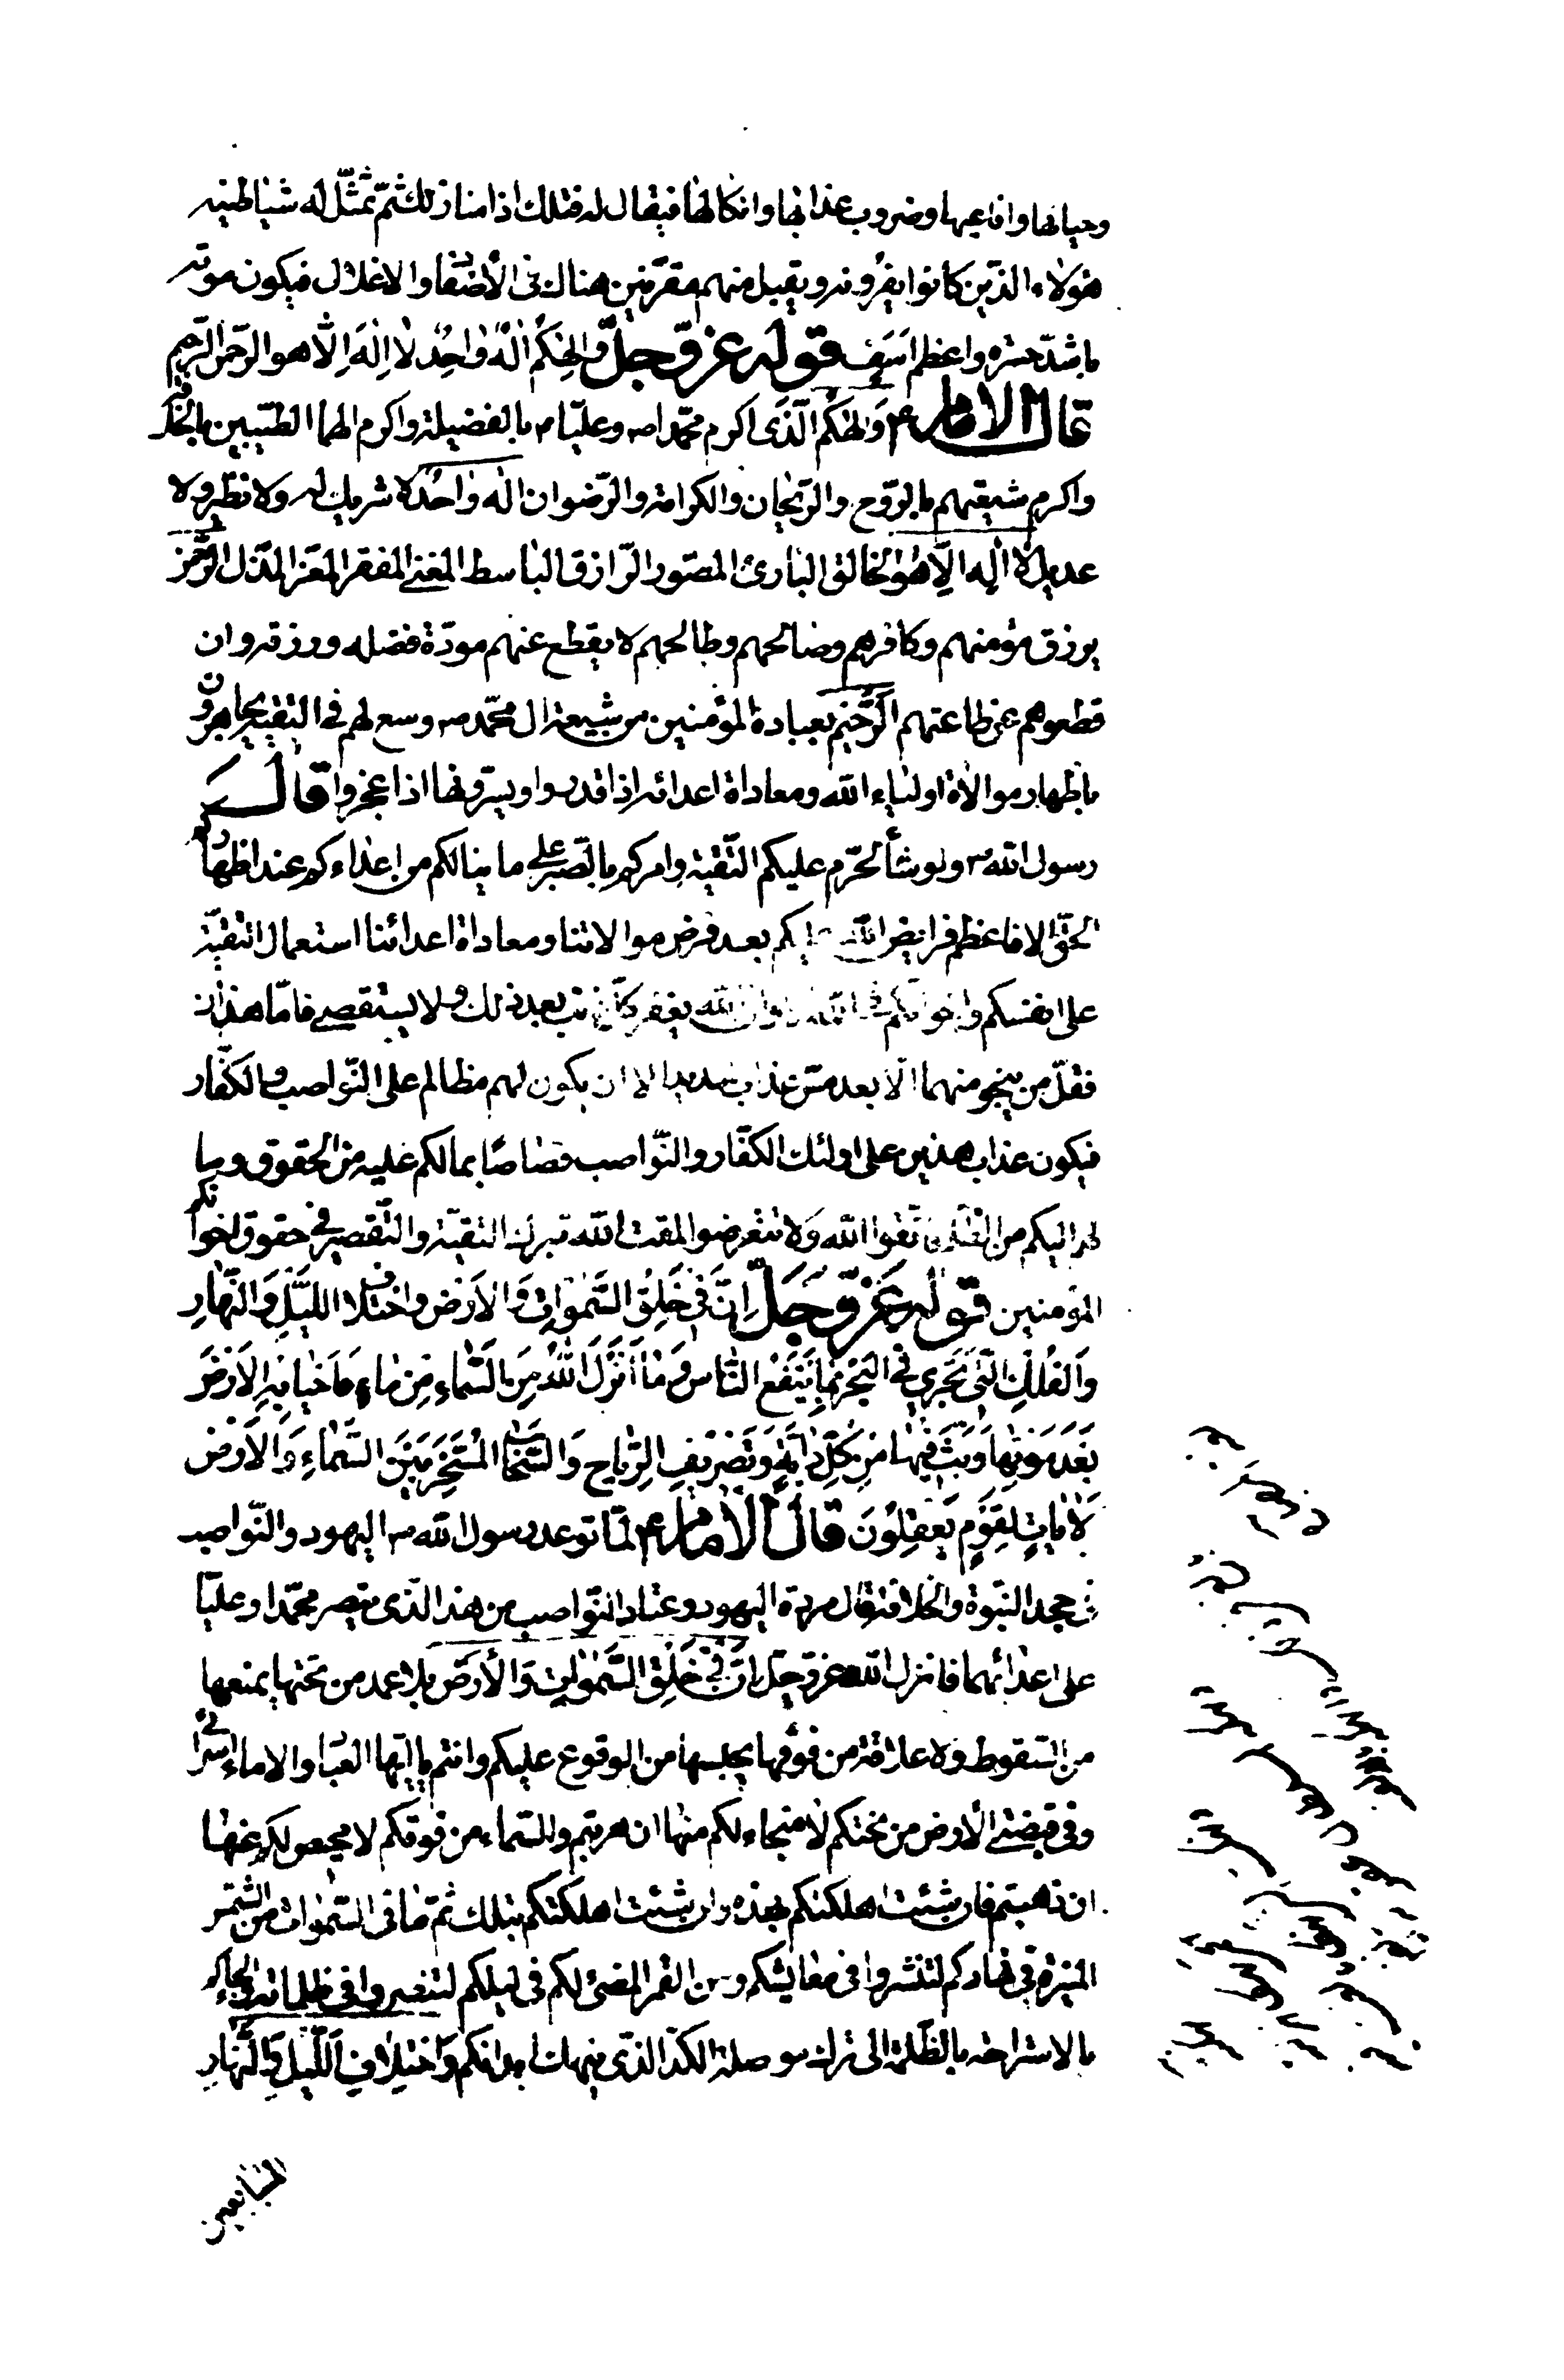 وحياتها وافاعيها وضروب عذابها وانكالها فيقال له فتلك اذا منازلك ثم تمثل له شياطينه
هؤلاء الذين كانوا يغرونه ويقبل منهم مقرنين هناك فى الأصفاد والاغلال فيكون موته
باشد حسرة واعظم اسف قوله عز وجل وَالِهُكُم اِلٰهٌ وٰاحِدٌ لٰا اِلٰهَ اِلّٰا هو الرحمن الرحيم
قال الامام ع وَالهكم الّذى اكرم محمّدا ص وعليّا ع بالفضيلة واكرم الهما الطيّبين بالخلافة
واكرم شيعتهم بالرّوح والرّيحان والكرامة والرّضوان اله واحد لا شريك له ولا نظير ولا
عديل لا اله الّا هو الخالق البارئ المصوّر الرّازق الباسط المغنى المفقر المعزّ المذلّ الرّحمن
يرزق مؤمنهم وكافرهم وصالحهم وطالحهم لا يقطع عنهم مودّة فضله ورزقه وان
قطعوهم عن طاعتهم الرّحيم بعباده المؤمنين من شيعة ال محمّد ص وسع لهم فى التقيّة يجاهرون
باظهار موالاة اولياء اللّه ومعاداة اعدائه اذا قدروا ويسترونها اذا عجزوا قال
رسول اللّه ص ولو شاء لحرّم عليكم التّقيّة وامركم بالصّبر على ما ينالكم من اعداءكم عند اظهاركم
الحقّ الا فاعظم فرايض اللّه عليكم بعد فرض موالاتنا ومعاداة اعدائنا استعمال التقيّة
على انفسكم واخوانكم فى اللّه وان اللّه يغفر كل ذنب بعد ذلك ولا يستقصى فامّا هذان
فقلّ من ينجو منهما الّا بعد مسّ عذاب شديد الا ان يكون لهم مظالم على النّواصب والكفّار
فيكون عذاب هذين على اولئك الكفّار والنّواصب قصاصًا بما لكم عليه من الحقوق وما
لهم اليكم من الظلم فاتّقوا اللّه وَلا تتعرضوا لمقت اللّه بترك التقيّة والتّقصير فى حقوق اخوانكم
المؤمنين قوله عزّ وجلّ اِنَّ فى خَلقِ السَّمٰوٰاتِ وَالاَرْضِ واختلاف اللَّيْلِ وَالنَّهٰارِ
وَالفُلكِ الّتى تَجرى فى البَحْرِ بِمٰا يَنْفَعُ النّٰاسَ وَمٰا اَنْزَلَ اللّٰهُ مِنَ السَّمٰاءِ مِنْ مٰاءٍ فَاَحْيٰا بِهِ الاَرْضَ
بَعْدَ مَوْتِهٰا وَبَثَّ فيهٰا مِنْ كُلِّ دٰابَّةٍ وَتَصْريفِ الرِّيٰاحِ وَالسَّحٰابِ المُسَخَّرِ بَيْنَ السَّمٰاءِ وَالاَرْضِ
لَاٰيٰاتٍ لِقَوْمٍ يَعْقِلُونَ قال الامام ع لمّا توعد رسول اللّه ص اليهود والنّواصب
فى جحد النّبوّة والخلافة قال مردة اليهود وعتاد النّواصب من هذا الّذى ينصر محمّدا وعليّا
على اعدائهما فانزل اللّه عزّ وجلّ انّ فى خلق السّمٰوٰات والأرض بلا عمد من تحتها يمنعها
من السّقوط ولا علاقة من فوقها يحبسها من الوقوع عليكم وانتم يا ايّها العباد والاماء اسرائى
وفى قبضتى الأرض من تحتكم لا منجاء لكم منها ان هربتم والسّماء من فوقكم لا محيص لكم عنها
ان ذهبتم فان شئت اهلكتكم بهذه وان شئت اهلكتكم بتلك ثمّ ما فى السّمٰوات من الشّمس
المنيرة فى نهاركم لتنتشروا فى معايشكم ومن القمر المضئ لكم فى ليلكم لتبصروا فى ظلماته والجاءكم
بالاستراحة بالظّلمة الى ترك مواصلة الكدّ الّذى ينهك ابدانكم وَاختِلافِ اللَّيْلِ وَالنَّهٰارِ